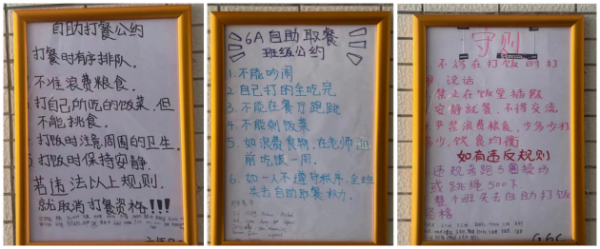 自助打餐公约
打餐时有序排队.
不准浪费粮食.
打自己所吃的饭菜.但
不能挑食.
打饭时注意周围的卫生.
打饭时保持安静.
若违法以上规则.
就取消打餐资格!!!
6A自助取餐
班级公约
1.不能吵闹
2.自己打的全吃完
3.不能在餐厅跑跳
4.不能剩饭菜
5.如浪费食物,在老师
前吃饭一周.
6.如一人不遵守秩序,全班
失去自助取餐权力.
守则
不得在打饭时打
说话
禁止在饭堂
安静就餐,不得交流
严禁浪费粮食,少多少打
少,饮食均衡
如有违反规则
违规者跑5圈操场
或跳绳500下
整个班失去自助打饭
资格